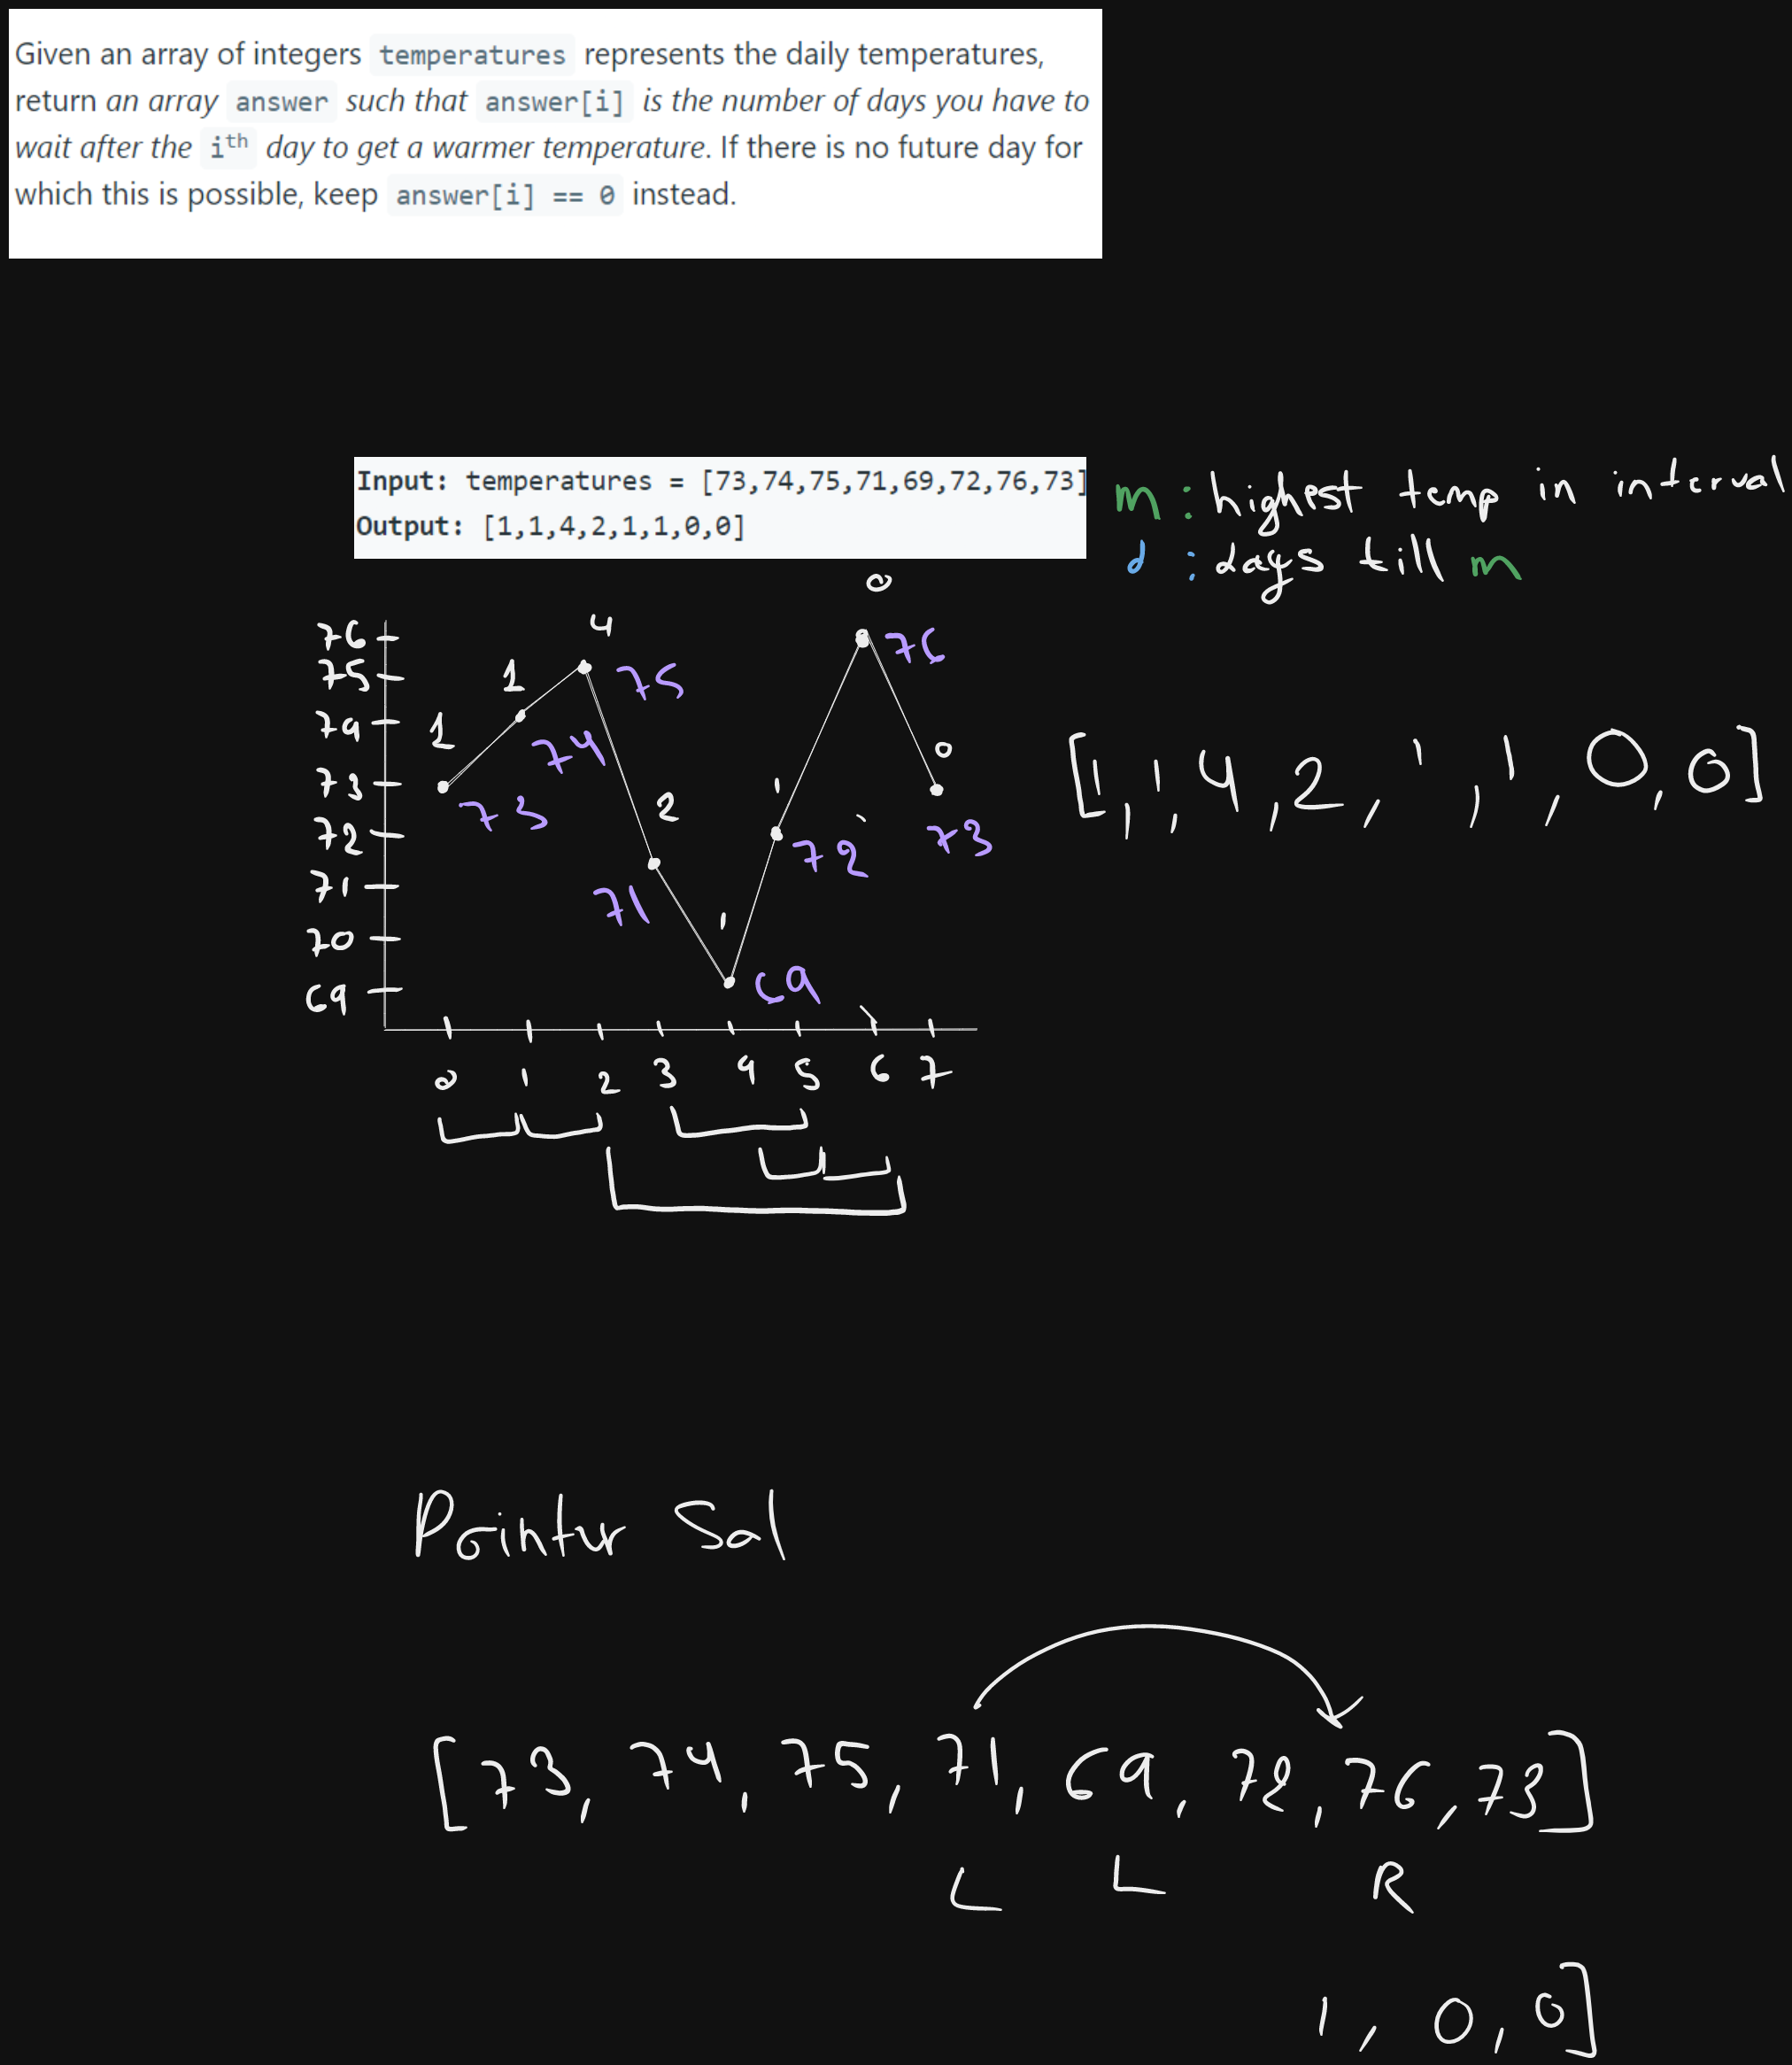 Given an array of integers temperatures represents the daily temperatures,
return an array answer such that answer[i] is the number of days you have to
wait after the ith day to get a warmer temperature. If there is no future day for
which this is possible, keep answer[i] == 0 instead.
Input: temperatures = [73,74,75,71,69,72,76,73]
Output: [1,1,4,2,1,1,0,0]
m : highest temp in interval
d : days till m
0
76
4
76
75
1
75
74
1
74
0
[1,1,4,2,1,1,0,0]
73
73
2
1
72
72
73
71
71
1
70
69
69
0 1 2 3 4 5 6 7
Pointer Sol
[73, 74, 75, 71, 69, 72, 76, 73]
L L R
1, 0, 0]